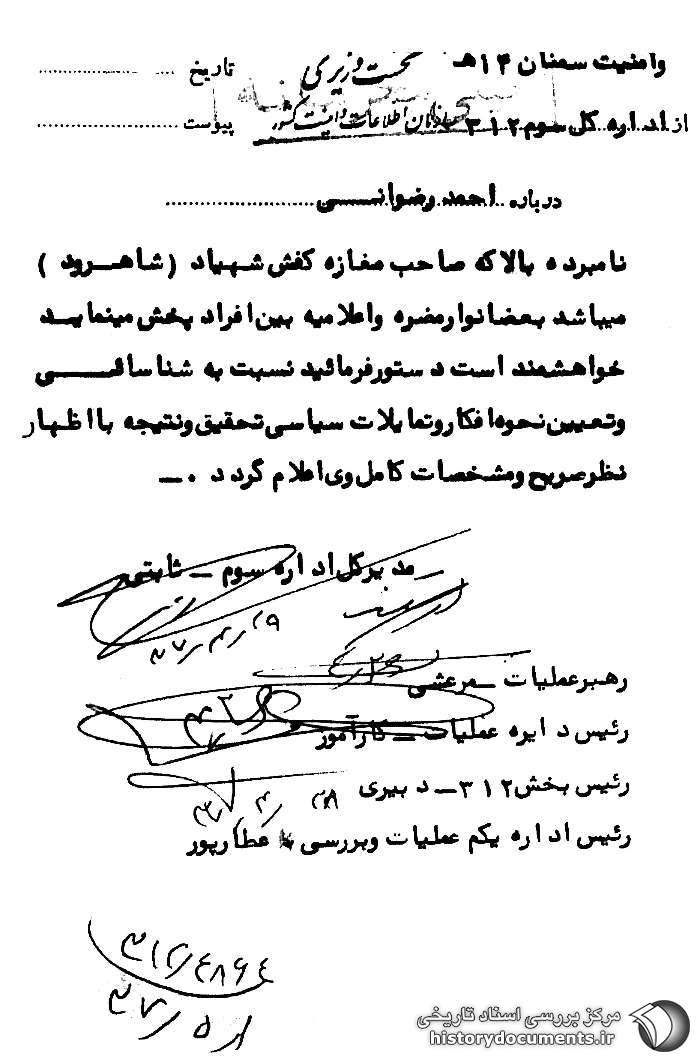 وامنیت سمنان ۱۴هـ
نخست وزیری
تاریخ
از اداره کل سوم ۳۱۲
سازمان اطلاعات و امنیت کشور
پیوست
درباره احمد رضوانی
نامبرده بالاکه صاحب مغازه کفش شهیاد (شاهرود)
میباشد بعضا نوارمضره واعلامیه بین افراد پخش مینماید
خواهشمند است دستورفرمائید نسبت به شناسائی
وتعیین نحوه افکاروتمایلات سیاسی تحقیق ونتیجه بااظهار
نظرصریح ومشخصات کامل وی اعلام گردد ۰ــ
مدیرکل اداره سوم ــ ثابتی
رهبرعملیات ــ مرعشی
رئیس دایره عملیات ــ کارآموز
رئیس بخش ۳۱۲ ــ دبیری
رئیس اداره یکم عملیات وبررسی عطارپور
۳۱۲/۴۸۶۴
۳۷/۵/۱
مرکز بررسی اسناد تاریخی
historydocuments.ir